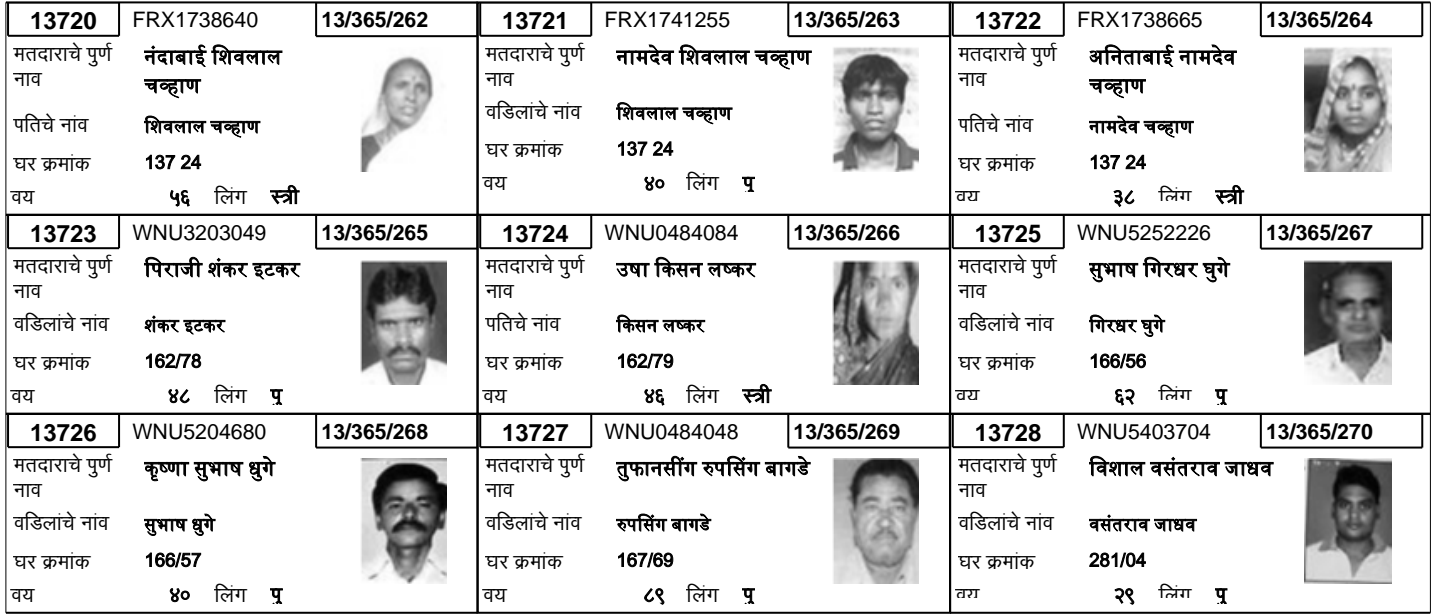 13720 FRX1738640 13/365/262
मतदाराचे पुर्ण नंदाबाई शिवलाल
नाव चव्हाण
पतिचे नांव शिवलाल चव्हाण
घर क्रमांक 137 24
वय ५६ लिंग स्त्री
13721 FRX1741255 13/365/263
मतदाराचे पुर्ण नामदेव शिवलाल चव्हाण
नाव
वडिलांचे नांव शिवलाल चव्हाण
घर क्रमांक 137 24
वय ४० लिंग पु
13722 FRX1738665 13/365/264
मतदाराचे पुर्ण अनिताबाई नामदेव
नाव चव्हाण
पतिचे नांव नामदेव चव्हाण
घर क्रमांक 137 24
वय ३८ लिंग स्त्री
13723 WNU3203049 13/365/265
मतदाराचे पुर्ण पिराजी शंकर इटकर
नाव
वडिलांचे नांव शंकर इटकर
घर क्रमांक 162/78
वय ४८ लिंग पु
13724 WNU0484084 13/365/266
मतदाराचे पुर्ण उषा किसन लष्कर
नाव
पतिचे नांव किसन लष्कर
घर क्रमांक 162/79
वय ४६ लिंग स्त्री
13725 WNU5252226 13/365/267
मतदाराचे पुर्ण सुभाष गिरधर घुगे
नाव
वडिलांचे नांव गिरधर घुगे
घर क्रमांक 166/56
वय ६२ लिंग पु
13726 WNU5204680 13/365/268
मतदाराचे पुर्ण कृष्णा सुभाष धुगे
नाव
वडिलांचे नांव सुभाष धुगे
घर क्रमांक 166/57
वय ४० लिंग पु
13727 WNU0484048 13/365/269
मतदाराचे पुर्ण तुफानसींग रुपसिंग बागडे
नाव
वडिलांचे नांव रुपसिंग बागडे
घर क्रमांक 167/69
वय ८९ लिंग पु
13728 WNU5403704 13/365/270
मतदाराचे पुर्ण विशाल वसंतराव जाधव
नाव
वडिलांचे नांव वसंतराव जाधव
घर क्रमांक 281/04
वय २९ लिंग पु